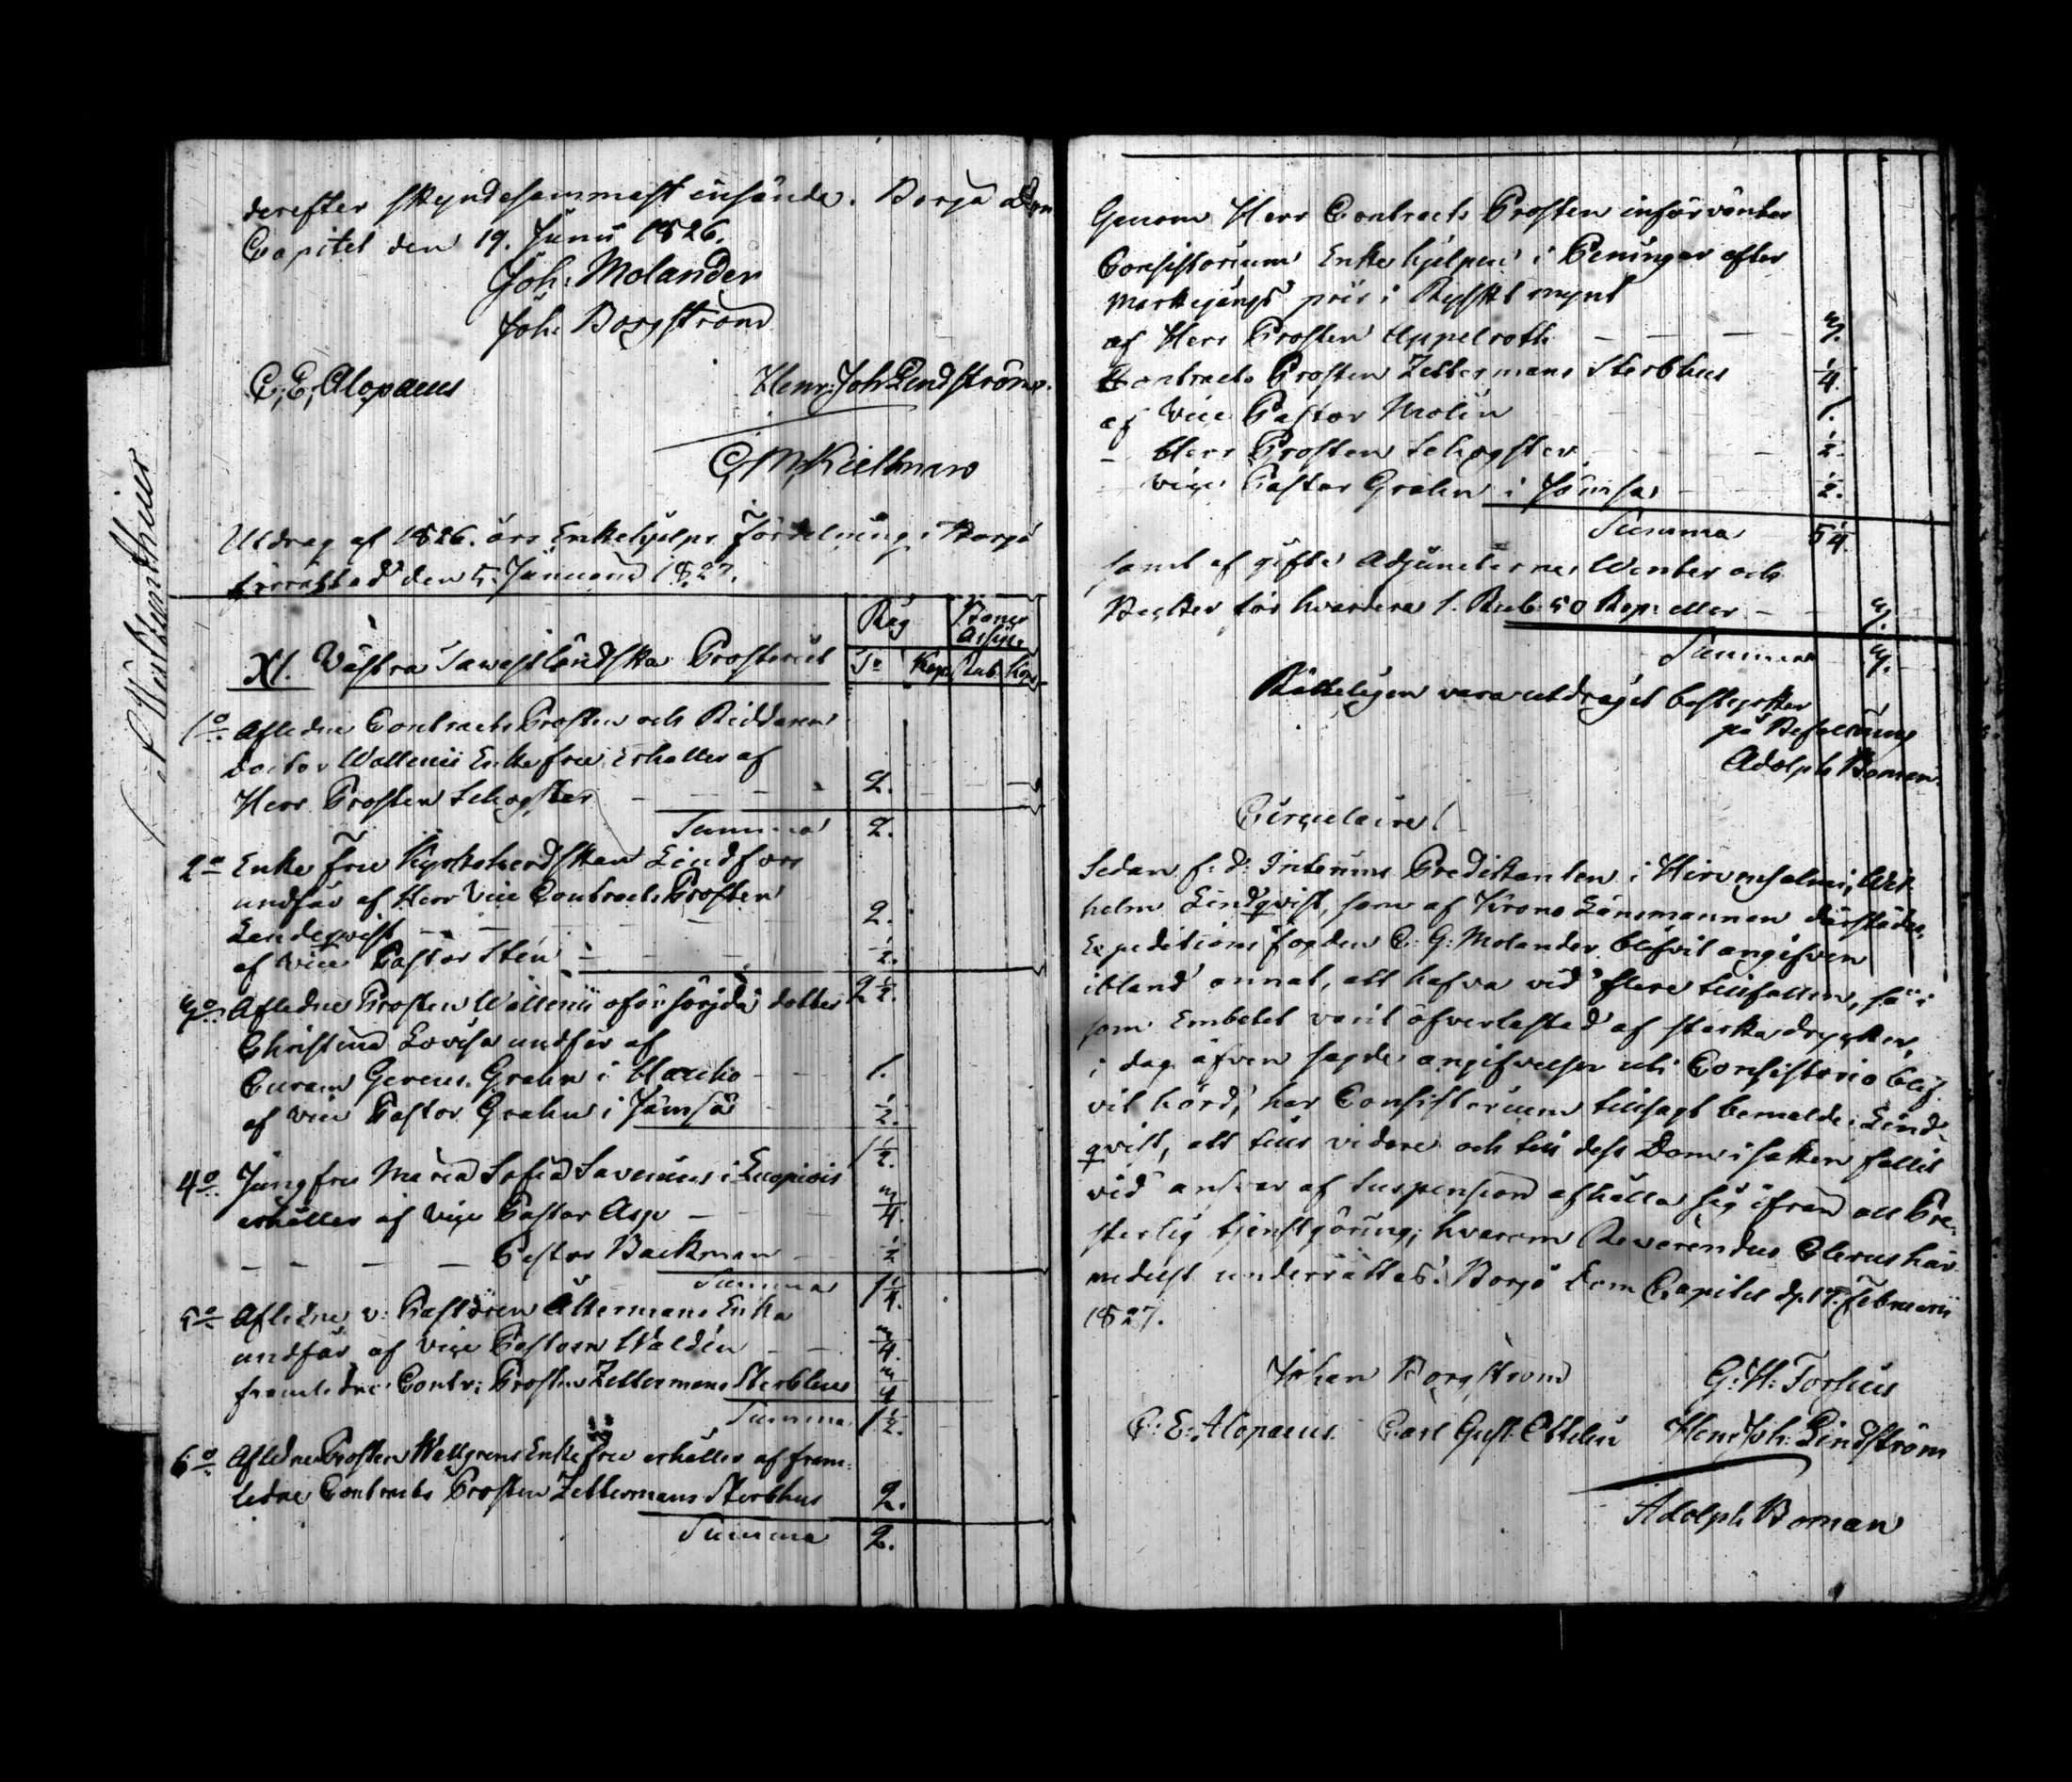 derefter skyndesammast insända. Borgå Dom
Capitel den 19. Junii 1826.
Joh: Molander
Joh: Borgström
C: E: Alopaeus Henr: Joh Lindström
C, M, Kiellman
Utdrag af 1826. års Enkehjelps Fördelning i Borgå
förrättad den 5. Januarii 1827.
Råg Banco Assign
XI. Västra Tawastländska Prosteriet To Kapp Rub: Kop
1o. Afledne Contracts Prosten och Riddaren
Doctor Wallenii Enkefru erhåller af
Herr Prosten Schogster 2.
Summa 2.
2o Enke fru Kyrkoherdskan Lindfors
undfår af Herr Vice Contracts Prosten
Lendeqvist 2.
af Vice Pastor Sten 1/2.
2 1/2.
3o. Afledne Prosten Wallenii oförsörjda dotter
Christina Lovisa undfår af
Curam Gerens Grahn i Hauho 1.
af Vice Pastor Grahn i Jämsä 1/2.
1 1/2.
4o. Jungfru Maria Sofia Savenius i Luopiois
erhåller af Vice Pastor Asp 3/4.
Pastor Backman 1/2
Summa 1 1/4.
5o. Afledne v: Pastoren Åkermans Enka
undfår af Vice Pastorn Waldén 3/4.
framledne Contr: Prosten Zettermans Sterbhus 3/4
Summa 1 1/2.
6o. Afledne Prosten Wallgrens Enkefru erhåller af fram-
ledne Contracts Prosten Zettermans Sterbhus 2.
Summa 2.
Genom Herr Contracts Prosten införväntar
Consistorium Enke hjelpen i Peningar efter
Markegångs pris i Ryskt mynt
af Herr Prosten Appelroth 3.
Contracts Prosten Zettermans Sterbhus 1/4.
af Vice Pastor Molin 1.
- Herr Prosten Schogster 1/2.
Vice Pastor Grahn i Jämsä 1/2.
Summa 5 1/4.
samt af gifte Adjuncterne Winter och
för hvardera 1. Rub: 50 Kop: eller 3.
Summa 3.
Rätteligen vara utdraget bestyrker
på Befallning
Adolph Boman.
Circulaire!
Sedan f: d: Interims Predikanten i Hirvensalmi, Wil-
helm Lindqvist, som af Krono Länsmannen därstädes,
Expeditions fogden C: G: Molander blifvit angifven
ibland annat, att hafva vid flere tillfällen, så i
som Embetet varit öfverlastad af starka drycker,
i dag äfven sagde angifvelser uti Consistorio blif-
vit hörd, har Consistorium tillsagt bemälde Lind-
qvist, att tills vidare och till dess Dom i saken fallit
vid answar af suspension afhålla sig ifrån all Pre-
sterlig tjenstgöring; hvarom Reverendus Clerus här-
medelst underrättas. Borgå Dom Capitel d. 17. Februarii
1827.
Johan Borgström G: H: Forsius
C: E: Alopaeus. Carl Gust. Ottelin Henr Joh: Lindström
Adolph Boman